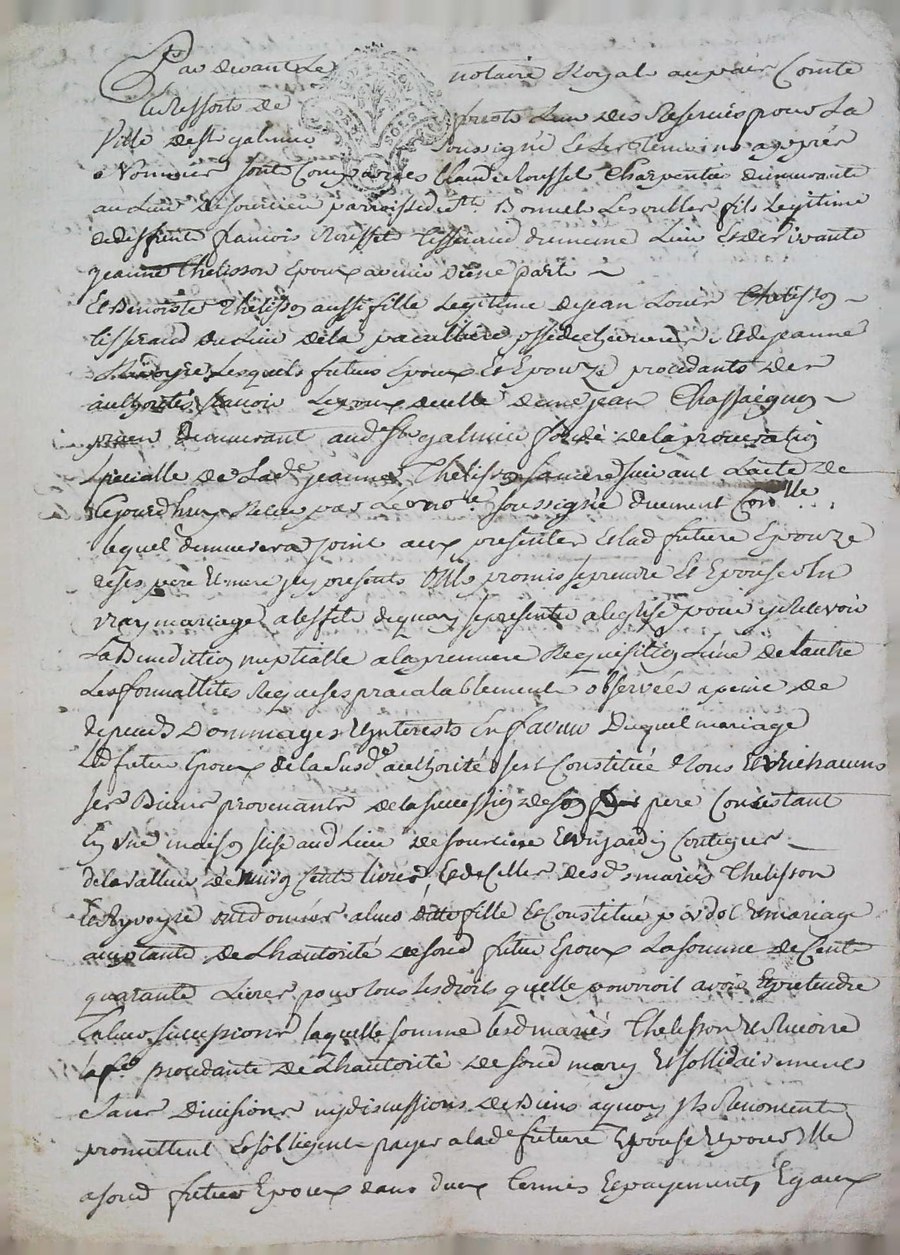 Par devant Le notaire Royal au païs Comté
Ressorts de Lieu des Reservés pour La
Ville de St galmier soussigné Et Les Temoins apprés
a Nommer sont Comparües Claude Rousset Charpentier demeurante
au Lieu de sourcieu parroisse de st Bonnet Les oulles fils Legitime
de deffunt francois Rousset Tisserand du meme Lieu Et de vivante
jeanne Thelisson Epoux avenir d'une part
Et Benoiste Thelisson aussi fille Legitime de jean Louis Thelisson
tisserand du Lieu de la de chevrieres Et de jeanne
Lesquels futurs Epoux Et Epouze procedants des
authorités scavoir L'epoux de celle de me jean Chassaignon
demeurant aud st galmier fondé de la procuration
specialle de Lade jeanne Thelisson sa mere suivant L'acte de
cejourd'huy Receu par Le nore soussigné duement Conllé
lequel demeurera joint aux presentes Et lad future Epouze
de ses pere Et mere icy presents Ont promis se prendre Et Epouser En
vray mariage a L'effet de quoy se presenter a Leglise pour y Recevoir
La Benediction nuptialle a la premiere Requisition L'une de L'autre
Les formalités Requises praealablement observées a peine de
depends Dommages Et interets En faveur Duquel mariage
Led futur Epoux de la susde authorité s'est Constitué Tous Et Uns chacuns
ses Biens provenants de la succession de son pere Consistant
En une maison sise aud Lieu de sourcieu Et un jardin Contigus
de la valleur de Cents livres Et de Celles desds mariés Thelisson
Et Ravoyre ont donnés a leur ditte fille Et Constitué par dot Et mariage
acceptante de L'hautorité de sond futur Epoux La somme de Cent
quarante Livres pour tous les droits quelle pourroit avoir Et pretendre
a leurs successions laquelle somme lesd mariés Thelisson Et Ravoire
la fe procedante de L'hautorité de sond mary Et sollidairement
sans Divisions ny discussions de Biens a quoy ils Renoncent
promettent Et s'obligent payer a lade future Epouse Et pour Elle
a sond futur Epoux dans deux termes Et payements Egaux